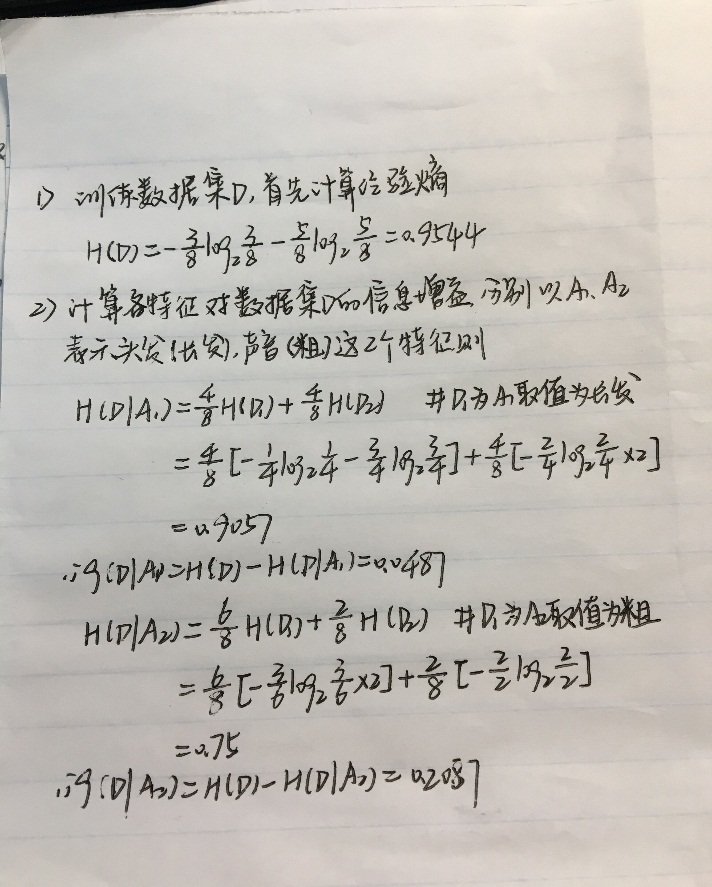 1) 训练数据集D,首先计算经验熵
H(D)=-3/8log₂3/8-5/8log₂5/8=0.9544
2) 计算各特征对数据集D的信息增益,分别以A₁、A₂
表示头发(长发),声音(粗)这2个特征则
H(D|A₁)=4/8H(D₁)+4/8H(D₂) #D₁为A₁取值为长发
=4/8[-1/4log₂1/4-3/4log₂3/4]+4/8[-2/4log₂2/4×2]
=0.9057
∴g(D|A₁)=H(D)-H(D|A₁)=0.0487
H(D|A₂)=6/8H(D₁)+2/8H(D₂) #D₁为A₂取值为粗
=6/8[-3/6log₂3/6×2]+2/8[-2/2log₂2/2]
=0.75
∴g(D|A₂)=H(D)-H(D|A₂)=0.2087